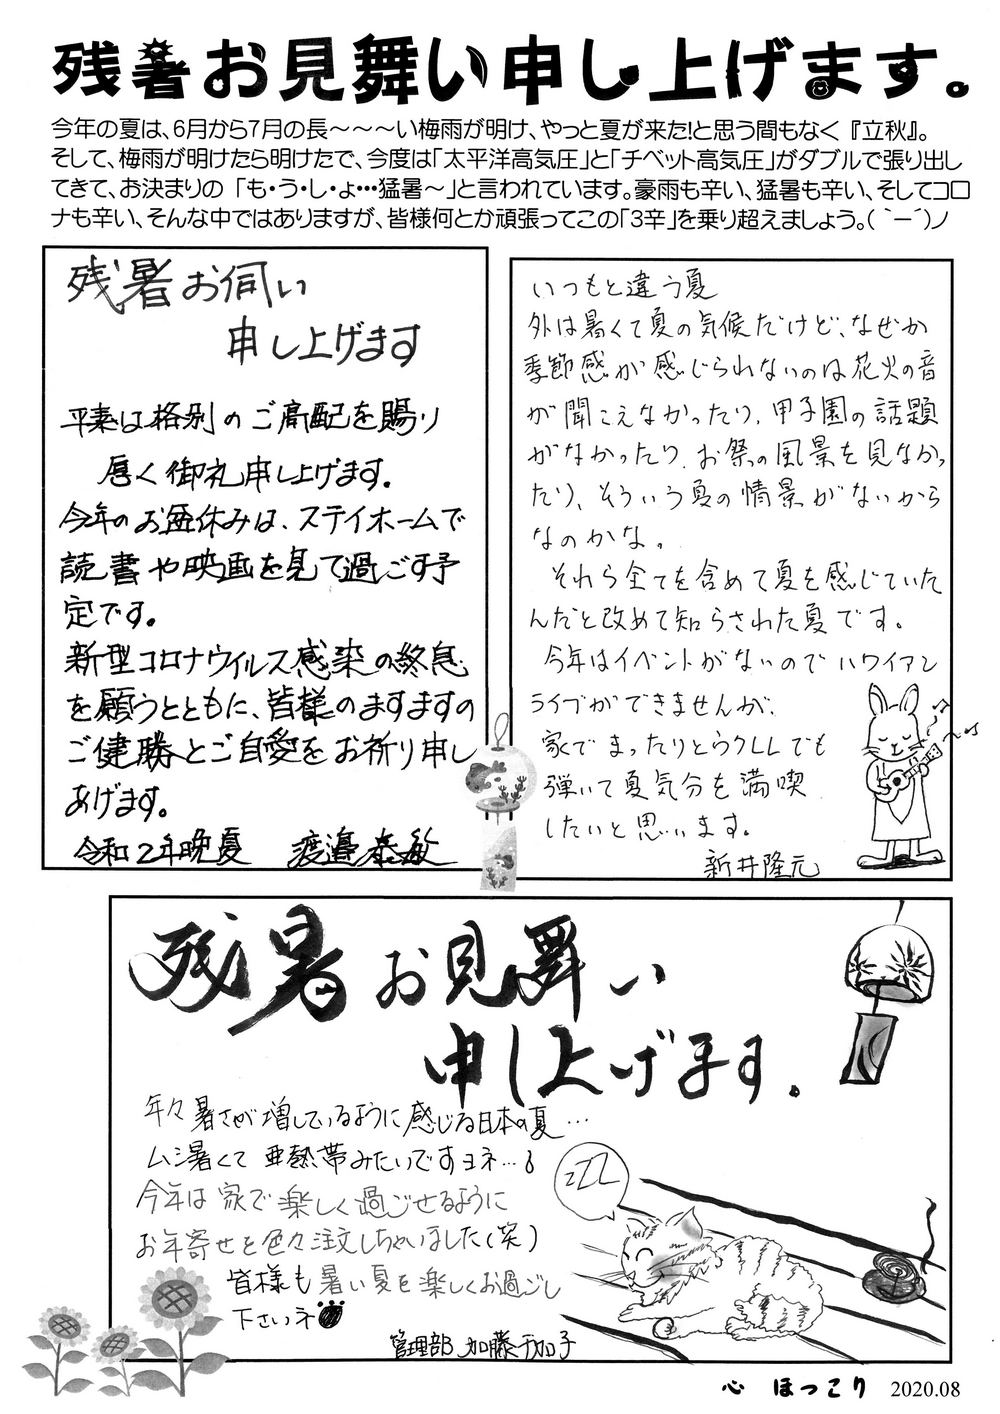 残暑お見舞い申し上げます。
今年の夏は、6月から7月の長～～～い梅雨が明け、やっと夏が来た!と思う間もなく『立秋』。
そして、梅雨が明けたら明けたで、今度は「太平洋高気圧」と「チベット高気圧」がダブルで張り出し
てきて、お決まりの「も・う・し・ょ…猛暑～」と言われています。豪雨も辛い、猛暑も辛い、そしてコロ
ナも辛い、そんな中ではありますが、皆様何とか頑張ってこの「3辛」を乗り超えましょう。(｀ー´)ノ
残暑お伺い
申し上げます
平素は格別のご高配を賜り
厚く御礼申し上げます。
今年のお盆休みは、ステイホームで
読書や映画を見て過ごす予
定です。
新型コロナウイルス感染の終息
を願うとともに、皆様のますますの
ご健勝とご自愛をお祈り申し
あげます。
令和2年晩夏 渡邉泰敏
いつもと違う夏
外は暑くて夏の気候だけど、なぜか
季節感が感じられないのは花火の音
が聞こえなかったり、甲子園の話題
がなかったり、お祭の風景を見なかっ
たり、そういう夏の情景がないから
なのかな。
それら全てを含めて夏を感じていた
んだと改めて知らされた夏です。
今年はイベントがないのでハワイアン
ライブができませんが、
家でまったりとウクレレでも
弾いて夏気分を満喫
したいと思います。
新井隆元
残暑お見舞い
申し上げます。
年々暑さが増しているように感じる日本の夏…
ムシ暑くて亜熱帯みたいですヨネ…。
今年は家で楽しく過ごせるように
お年寄せを色々注文しちゃいました(笑)
皆様も暑い夏を楽しくお過ごし
下さいネ
管理部 加藤千加子
zZZ
心 ほっこり 2020.08